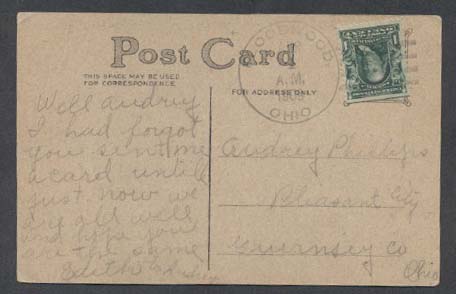 Post Card
THIS SPACE MAY BE USED
FOR CORRESPONDENCE
FOR ADDRESS ONLY
A.M.
1909
OHIO
Well Audrey
I had forgot
you sent me
a card until
just now we
are all well
and hope you
are the same
Edith
Audrey Phillips
Pleasant City
Guernsey Co
Ohio